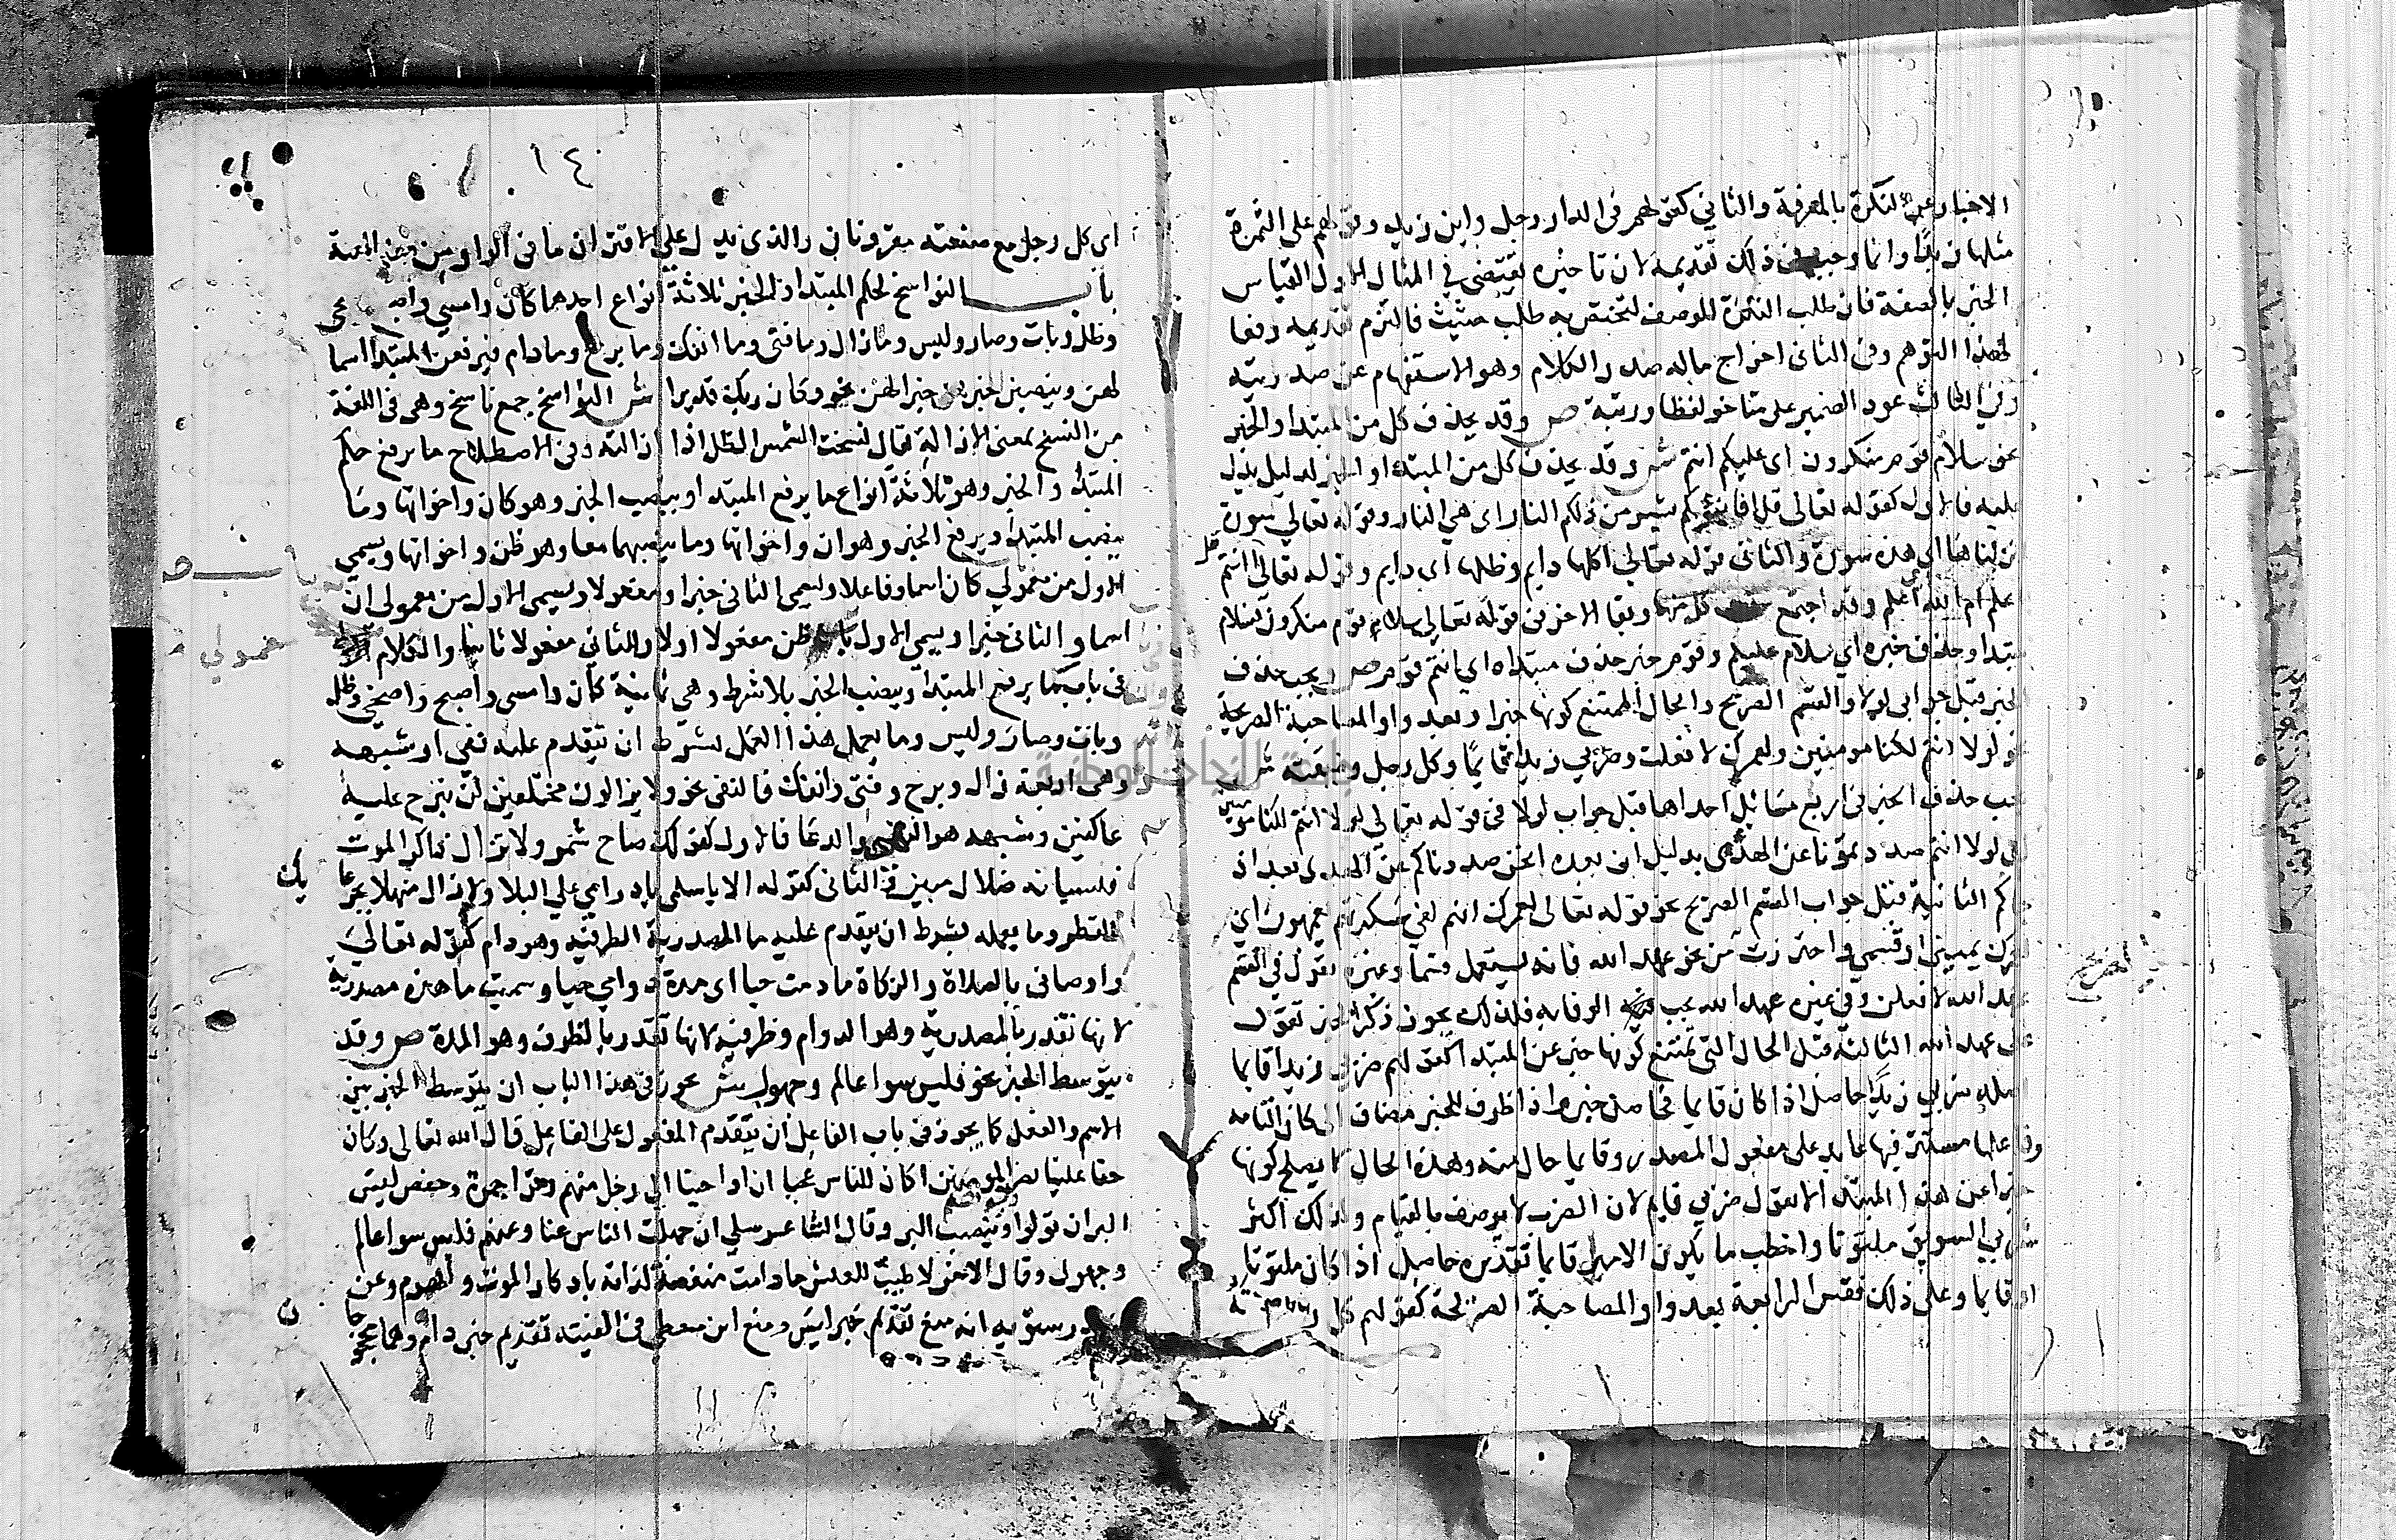 الاخبار عن النكرة بالمعرفة والثاني كقولهم في الدار رجل واين زيد وقولهم على التمرة
مثلها زبدا وانما وجب في ذلك تقديمه لان تاخيره يقتضي في المثال الاول القياس
الخبر بالصفة فان طلب النكرة الموصف لتختص به طلب حثيث فالتزم تقديمه دفعا
لهذا التوهم وفي الثاني اخراج ماله صدر الكلام وهو الاستفهام عن صدريته
وفي الثالث عود الضمير على متاخر لفظا ورتبة ص وقد يحذف كل من المبتدا والخبر
نحو سلام قوم منكرون اى عليكم انتم ش وقد يحذف كل من المبتدا والخبر لدليل يدل
عليه فالاول كقوله تعالى قل افانبئكم بشر من ذلكم النار اى هي النار وقوله تعالى سورة
انزلناها اى هذه سورة والثاني قوله تعالى اكلها دايم وظلها اى دايم وقوله تعالى اانتم
قل
اعلم ام الله اى اعلم وقد اجتمع حذف كل منها وبقا الاخر في قوله تعالى سلام قوم منكرون فسلام
مبتدا وحذف خبره اي سلام عليكم وقوم خبر حذف مبتداه اي انتم قوم ص ويجب حذف
الخبر قبل جوابي لولا والقسم الصريح والحال الممتنع كونها خبرا وبعد واو المصاحبة الصريحة
نحو لولا انتم لكنا مومنين ولعمرك لافعلن وضربي زيدا قايما وكل رجل وضيعته ش
يجب حذف الخبر في اربع مسائل احداها قبل جواب لولا في قوله تعالى لولا انتم لكنا مومنين
اي لولا انتم صددتمونا عن الهدى بدليل ان بعده انحن صددناكم عن الهدى بعد اذ
جاكم الثانية قبل جواب القسم الصريح نحو قوله تعالى لعمرك انهم لفي سكرتهم يعمهون اي
لعمرك يميني او قسمي واحترزت من نحو عهد الله فانه يستعمل قسما وغيره تقول في القسم
الصريح
عهد الله لافعلن وفي غيره عهد الله يجب الوفا به فلذلك يجوز ذكر الخبر تقول
على عهد الله الثالثة قبل الحال التي يمتنع كونها خبر عن المبتدا كقولهم ضربي زيدا قايما
اصله ضربي زيدا حاصل اذا كان قايما فحاصل خبره واذا ظرف للخبر مضاف الى كان التامة
وفاعلها مستتر فيها عايد على مفعول المصدر وقايما حال منه وهذه الحال لا يصلح كونها
خبرا عن هذا المبتدا لا تقول ضربي قايم لان الضرب لا يوصف بالقيام وكذلك اكثر
شربي السويق ملتوتا واخطب ما يكون الامير قايما تقديره حاصل اذا كان ملتوتا
او قايما وعلى ذلك فقس الرابعة بعد واو المصاحبة الصريحة كقولهم كل رجل وضيعته
١٤
اى كل رجل مع ضيعته مقرونان والذى يدل على الاقتران ما في الواو من معنى المعية
باب النواسخ لحكم المبتدا والخبر ثلاثة انواع احدها كان وامسى واصبح واضحى
وظل وبات وصار وليس وما زال وما فتى وما انفك وما برح وما دام فيرفعن المبتدا اسما
لهن وينصبن الخبر خبرا لهن نحو وكان ربك قديرا ش النواسخ جمع ناسخ وهي في اللغة
من النسخ بمعنى الازالة يقال نسخت الشمس الظل اذا ازالته وفي الاصطلاح ما يرفع حكم
المبتدا والخبر وهو ثلاثة انواع ما يرفع المبتدا وينصب الخبر وهو كان واخواتها وما
ينصب المبتدا ويرفع الخبر وهو ان واخواتها وما ينصبهما معا وهو ظن واخواتها ويسمى
باب
الاول من معمولي كان اسما وفاعلا ويسمى الثاني خبرا ومفعولا ويسمى الاول من معمولي ان
معمولي
اسما والثاني خبرا ويسمى الاول من ظن مفعولا اولا والثاني مفعولا ثانيا والكلام الان
في باب كان ما يرفع المبتدا وينصب الخبر بلا شرط وهي ثمانية كان وامسى واصبح واضحى وظل
وبات وصار وليس وما يعمل هذا العمل بشرط ان يتقدم عليه نفي او شبهه
وهي اربعة زال وبرح وفتى وانفك فالنفي نحو ولا يزالون مختلفين لن نبرح عليه
عاكفين وشبهه هو النهى والدعا فالاول كقولك صاح شمر ولا تزال ذاكر الموت
فنسيانه ضلال مبين والثاني كقوله الا يا سلمى يا دارمي على البلا ولا زال منهلا بجرعائك
القطر وما يعمله بشرط ان يتقدم عليه ما المصدرية الظرفية وهو دام كقوله تعالى
واوصاني بالصلاة والزكاة ما دمت حيا اى مدة دوامي حيا وسميت ما هذه مصدرية
لانها تقدر بالمصدرية وهو الدوام وظرفية لانها تقدر بالظرف وهو المدة ص وقد
يتوسط الخبر نحو فليس سوا عالم وجهول ش يجوز في هذا الباب ان يتوسط الخبر بين
الاسم والفعل كما يجوز في باب الفاعل ان يتقدم المفعول على الفاعل قال الله تعالى وكان
حقا علينا نصر المومنين اكان للناس عجبا ان اوحينا الى رجل منهم وقرا حمزة وحفص ليس
البر ان تولوا بنصب البر وقال الشاعر سلي ان جهلت الناس عنا وعنهم فليس سوا عالم
وجهول وقال الاخر لا طيب للعيش ما دامت منغصة لذاته بادكار الموت والهرم وعن
ابن درستويه انه منع تقديم خبر ليس ومنع ابن معطي في الفيته تقديم خبر دام وهما محجوجان